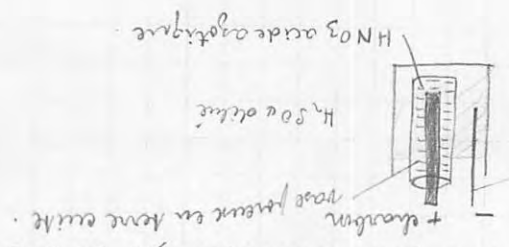 + charbon
vase poreux en terre cuite.
H₂SO₄ dilué
HNO₃ acide azotique.
−